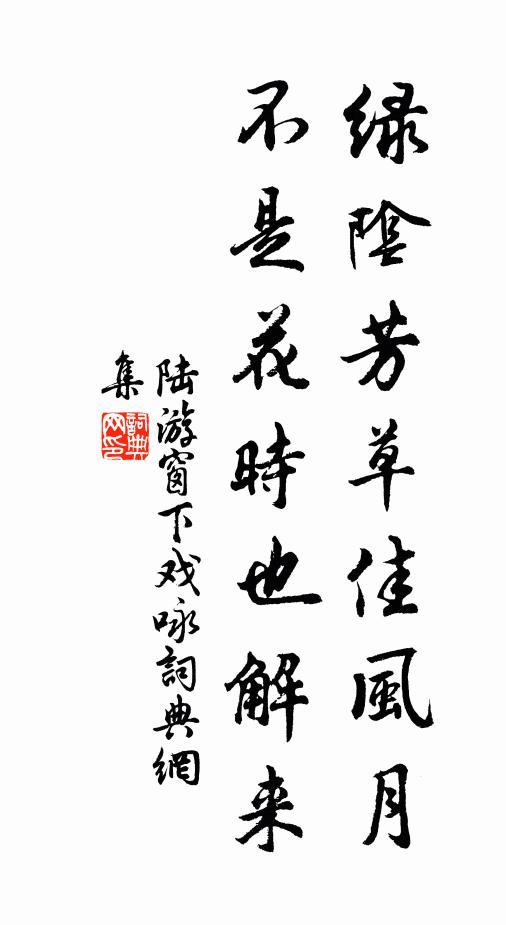 绿陰芳草佳風月
不是花時也解来
陆游窗下戏咏詞典網
集
詞典
网印